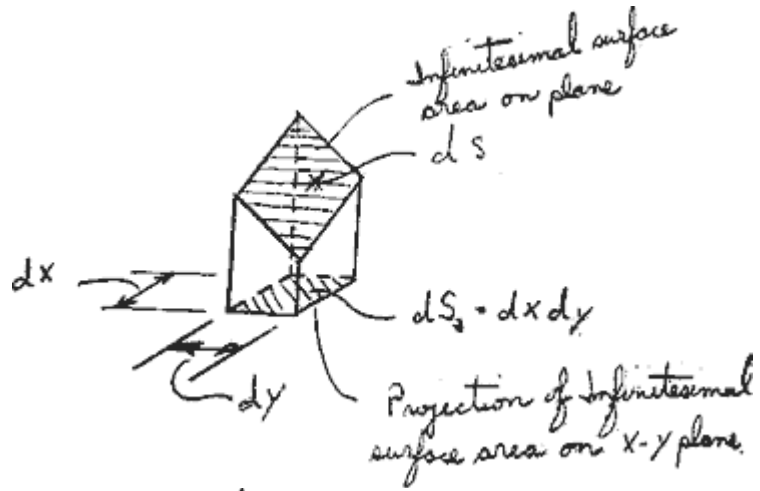 Infinitesimal surface
area on plane
dS
dx
dS₃ = dx dy
dy
Projection of Infinitesimal
surface area on x-y plane.